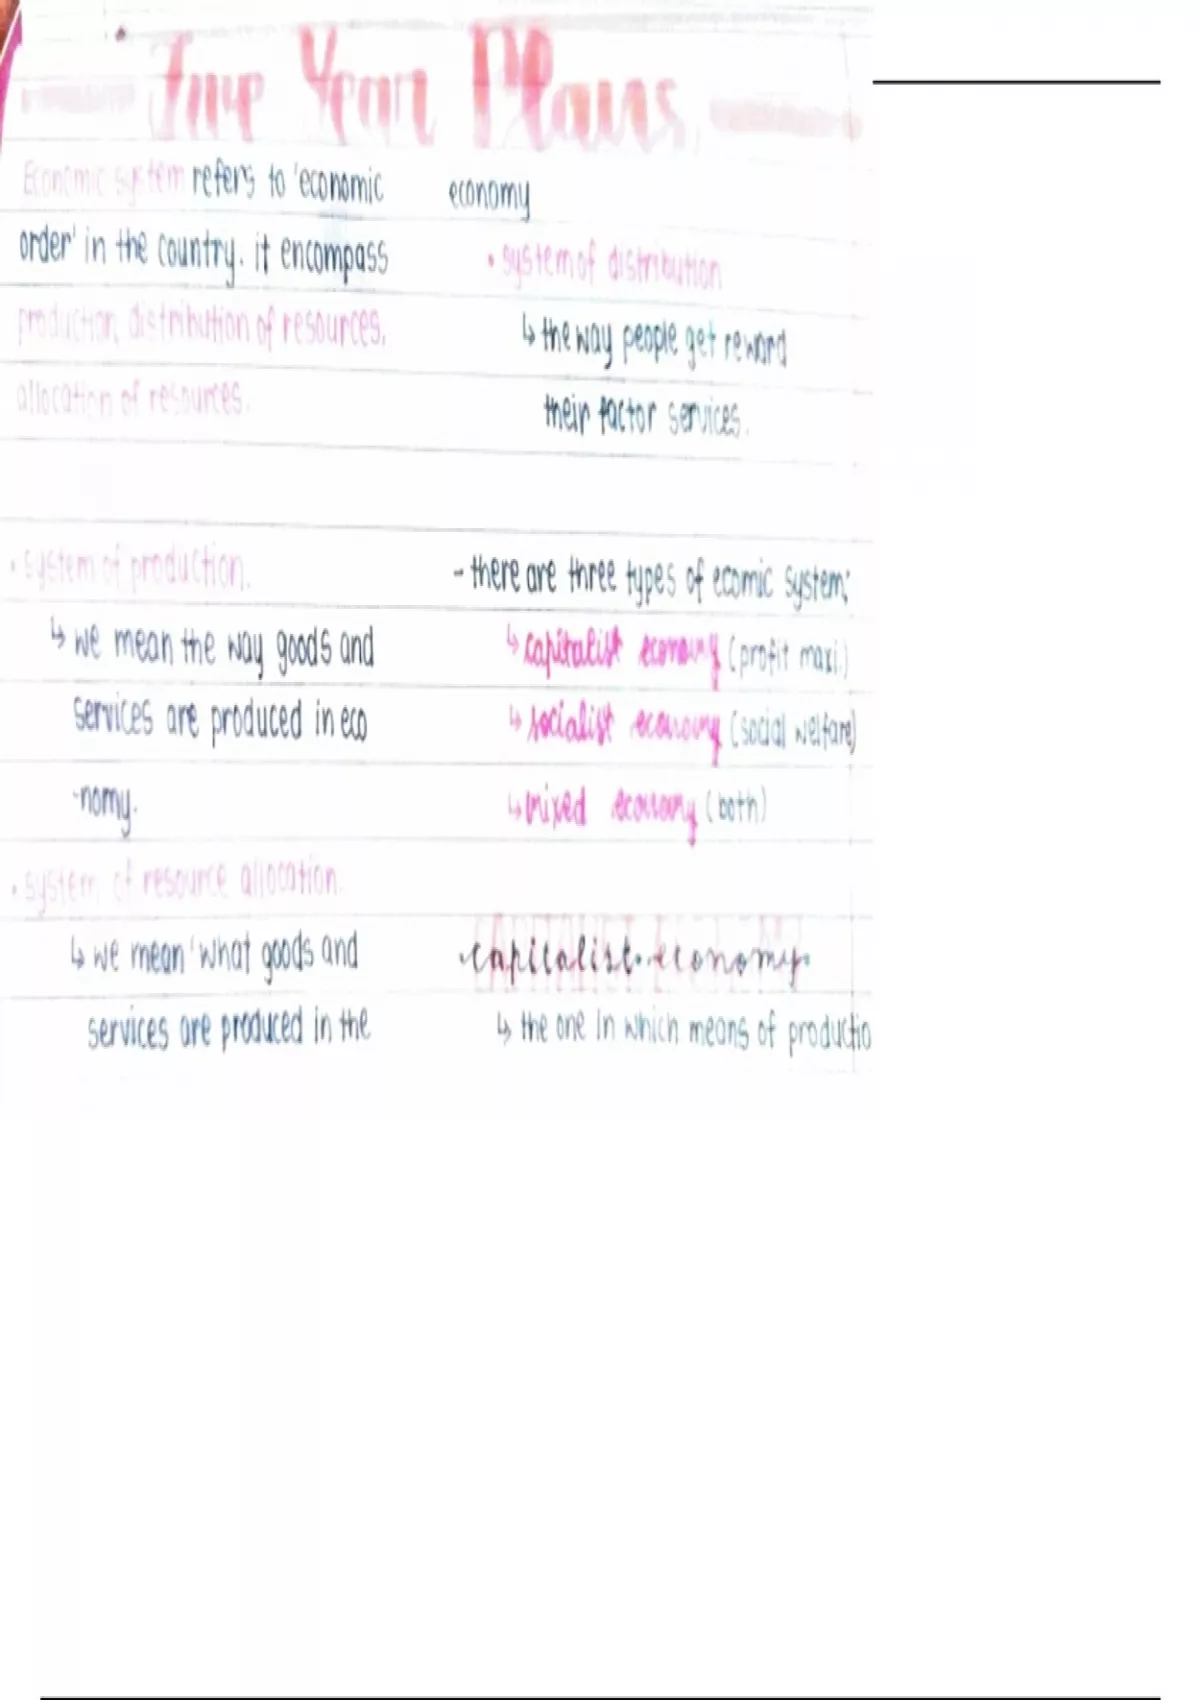 Five Year Plans
Economic system refers to 'economic
order' in the country. it encompass
production, distribution of resources,
allocation of resources.
• system of production.
↳ we mean the way goods and
services are produced in eco
-nomy.
• system of resource allocation.
↳ we mean 'what goods and
services are produced in the
economy
• system of distribution
↳ the way people get reward
their factor services.
- there are three types of ecomic system;
↳ capitalist economy (profit maxi.)
↳ socialist economy (social welfare)
↳ mixed economy (both)
• capitalist • economy •
↳ the one in which means of productio